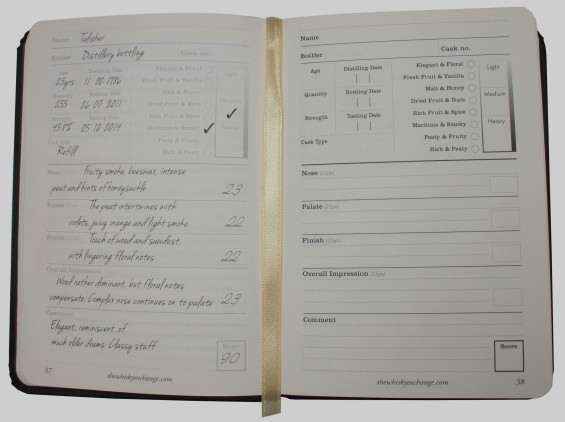 Name Talisker
Bottler Distillery bottling Cask no.
Age Distilling Date Elegant & Floral Light
25yrs 11 00 1986 Fresh Fruit & Vanilla
Quantity Bottling Date Malt & Honey Medium
255 26 07 2011 Dried Fruit & Nuts
Strength Tasting Date Rich Fruit & Spice ✓
45.8% 05 10 2014 Maritime & Smoky ✓ Heavy
Cask Type Peaty & Fruity
Refill Rich & Peaty
Nose Fruity smoke, beeswax, intense
peat and hints of honeysuckle 23
Palate The peat intertwines with
violets, juicy orange and light smoke 22
Finish Touch of wood and sawdust,
with lingering floral notes 22
Overall Impression
Wood rather dominant, but floral notes
compensate. Complex nose continues on to palate 23
Comment
Elegant, reminiscent of
much older drams. Classy stuff
Score
90
57
thewhiskyexchange.com
Name
Bottler Cask no.
Age Distilling Date Elegant & Floral Light
Fresh Fruit & Vanilla
Quantity Bottling Date Malt & Honey Medium
Dried Fruit & Nuts
Strength Tasting Date Rich Fruit & Spice Heavy
Maritime & Smoky
Cask Type Peaty & Fruity
Rich & Peaty
Nose (25pts)
Palate (25pts)
Finish (25pts)
Overall Impression (25pts)
Comment
Score
thewhiskyexchange.com
58